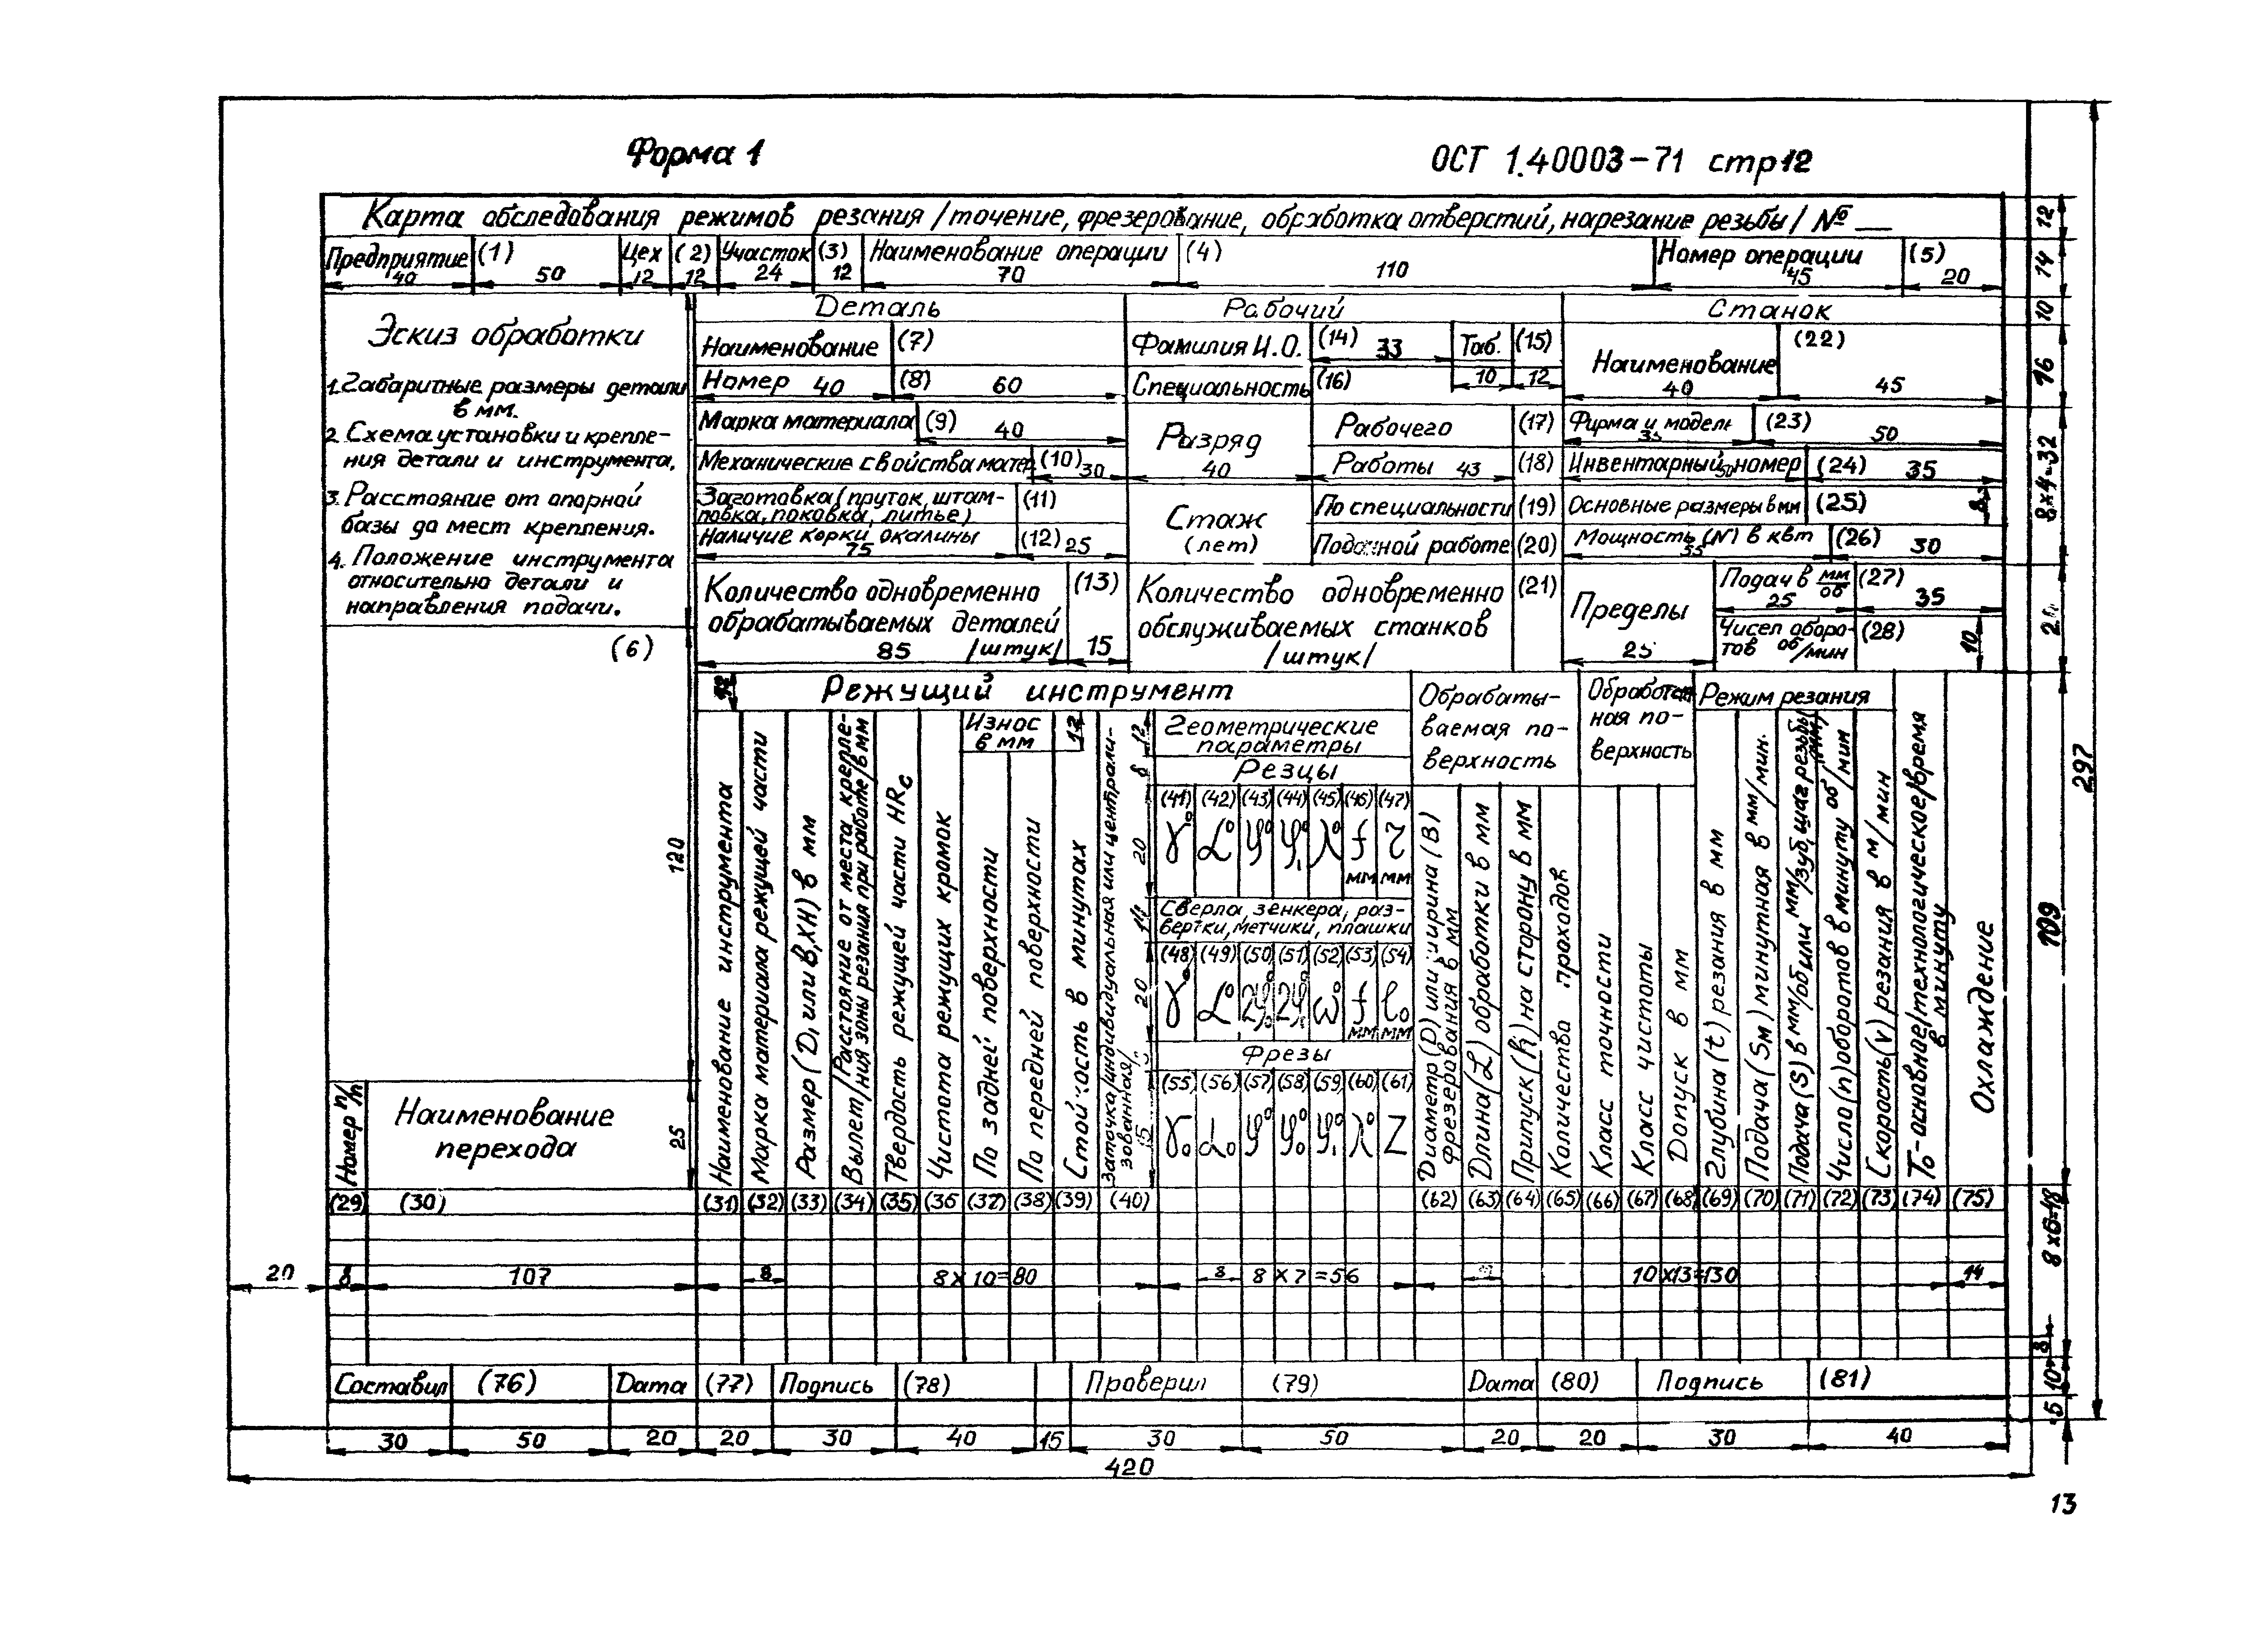 Форма 1
ОСТ 1.40003-71 стр 12
Карта обследования режимов резания /точение, фрезерование, обработка отверстий, нарезание резьбы/ № __
Предприятие (1) Цех (2) Участок (3) Наименование операции (4) Номер операции (5)
40 50 12 12 24 12 70 110 45 20
12
14
Эскиз обработки
1. Габаритные размеры детали
в мм.
2. Схема установки и крепле-
ния детали и инструмента.
3. Расстояние от опорной
базы до мест крепления.
4. Положение инструмента
относительно детали и
направления подачи.
(6)
120
25
Деталь
Наименование (7)
Номер 40 (8) 60
Марка материала (9) 40
Механические свойства матер (10) 30
Заготовка (пруток, штам-
повка, поковка, литье) (11)
Наличие корки, окалины (12) 25
75
Количество одновременно (13)
обрабатываемых деталей
85 /штук/ 15
Рабочий
Фамилия И.О. (14) 33 Таб. (15)
Специальность (16) 10 12
Разряд Рабочего (17)
40 Работы 43 (18)
Стаж По специальности (19)
(лет) По данной работе (20)
Количество одновременно (21)
обслуживаемых станков
/штук/
Станок
Наименование (22)
40 45
Фирма и модель (23)
35 50
Инвентарный номер (24) 35
50
Основные размеры в мм (25) 8
Мощность (N) в квт (26) 30
55
Пределы Подач в мм/об (27)
25 35
Чисел оборо- (28)
тов об/мин
25 10
10
16
8x4=32
109
297
8x6=48
8
10
5
12 Режущий инструмент
Наименование инструмента
Марка материала режущей части
Размер (D, или В,ХН) в мм
Вылет /Расстояние от места крепле-
ния зоны резания при работе/ в мм
Твердость режущей части HRc
Чистота режущих кромок
Износ
в мм
12
По задней поверхности
По передней поверхности
Стойкость в минутах
Заточка /индивидуальная или централи-
зованная/
Геометрические
параметры
12
Резцы
8
(41) (42) (43) (44) (45) (46) (47)
γ° α° φ° φ₁° λ° f r
мм мм
20
Сверла, зенкера, раз-
вертки, метчики, плашки
(48) (49) (50) (51) (52) (53) (54)
γ° α° 2φ° 2φ° ω° f l₀
мм мм
20
Фрезы
(55) (56) (57) (58) (59) (60) (61)
γ₀ α₀ φ° φ₀° φ₁° λ° Z
Обрабаты-
ваемая по-
верхность
Диаметр (D) или ширина (В)
фрезерования в мм
Длина (L) обработки в мм
Припуск (h) на сторону в мм
Количество проходов
Обработан-
ная по-
верхность
Класс точности
Класс чистоты
Допуск в мм
Режим резания
Глубина (t) резания в мм
Подача (Sм) минутная в мм/мин.
Подача (S) в мм/об или мм/зуб, шаг резьбы
Число (n) оборотов в минуту об/мин
Скорость (v) резания в м/мин
То-основное/технологическое/время
в минуту
Охлаждение
Номер п/п
Наименование
перехода
(29) (30) (31) (32) (33) (34) (35) (36 (37) (38) (39) (40) (62) (63) (64) (65) (66) (67) (68) (69) (70) (71) (72) (73) (74) (75)
20 8 107 8 8x10=80 8 8x7=56 10x13=130 14
Составил (76) Дата (77) Подпись (78) Проверил (79) Дата (80) Подпись (81)
30 50 20 20 30 40 15 30 50 20 20 30 40
420
13